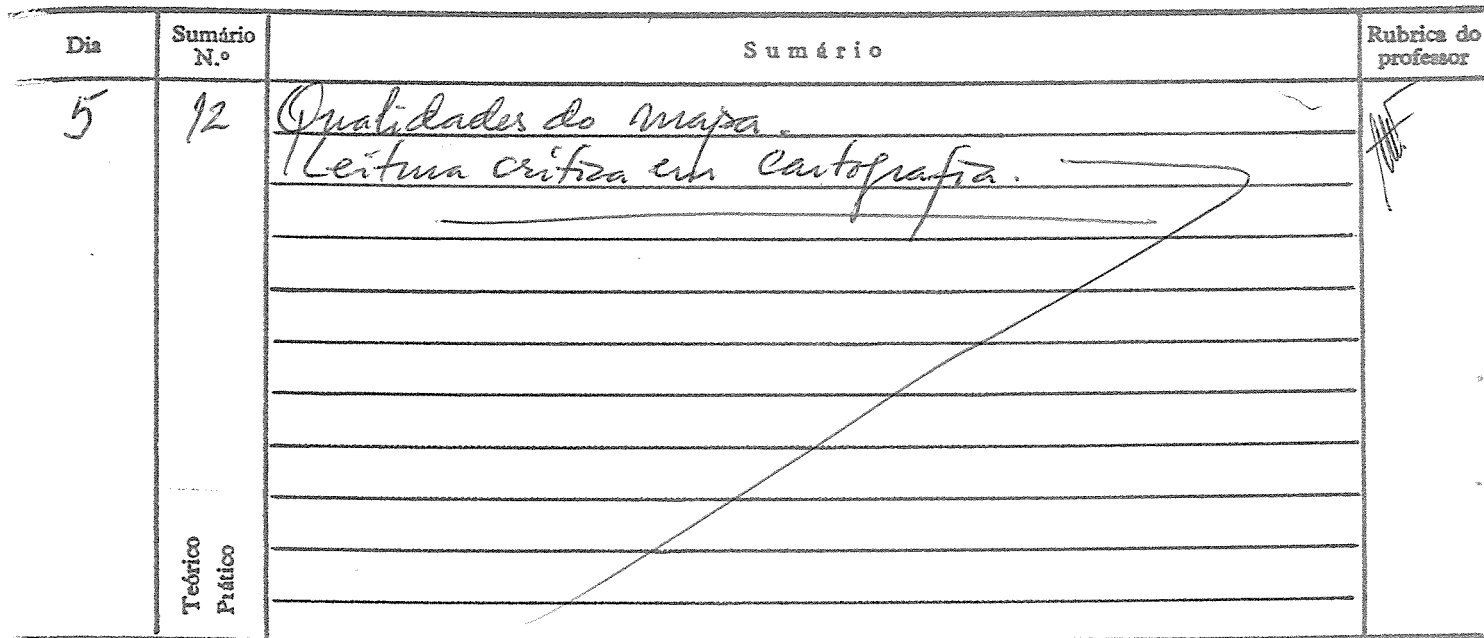 Dia
Sumário N.º
Sumário
Rubrica do professor
5
12
Qualidades do mapa.
Leitura crítica em cartografia.
Teórico
Prático